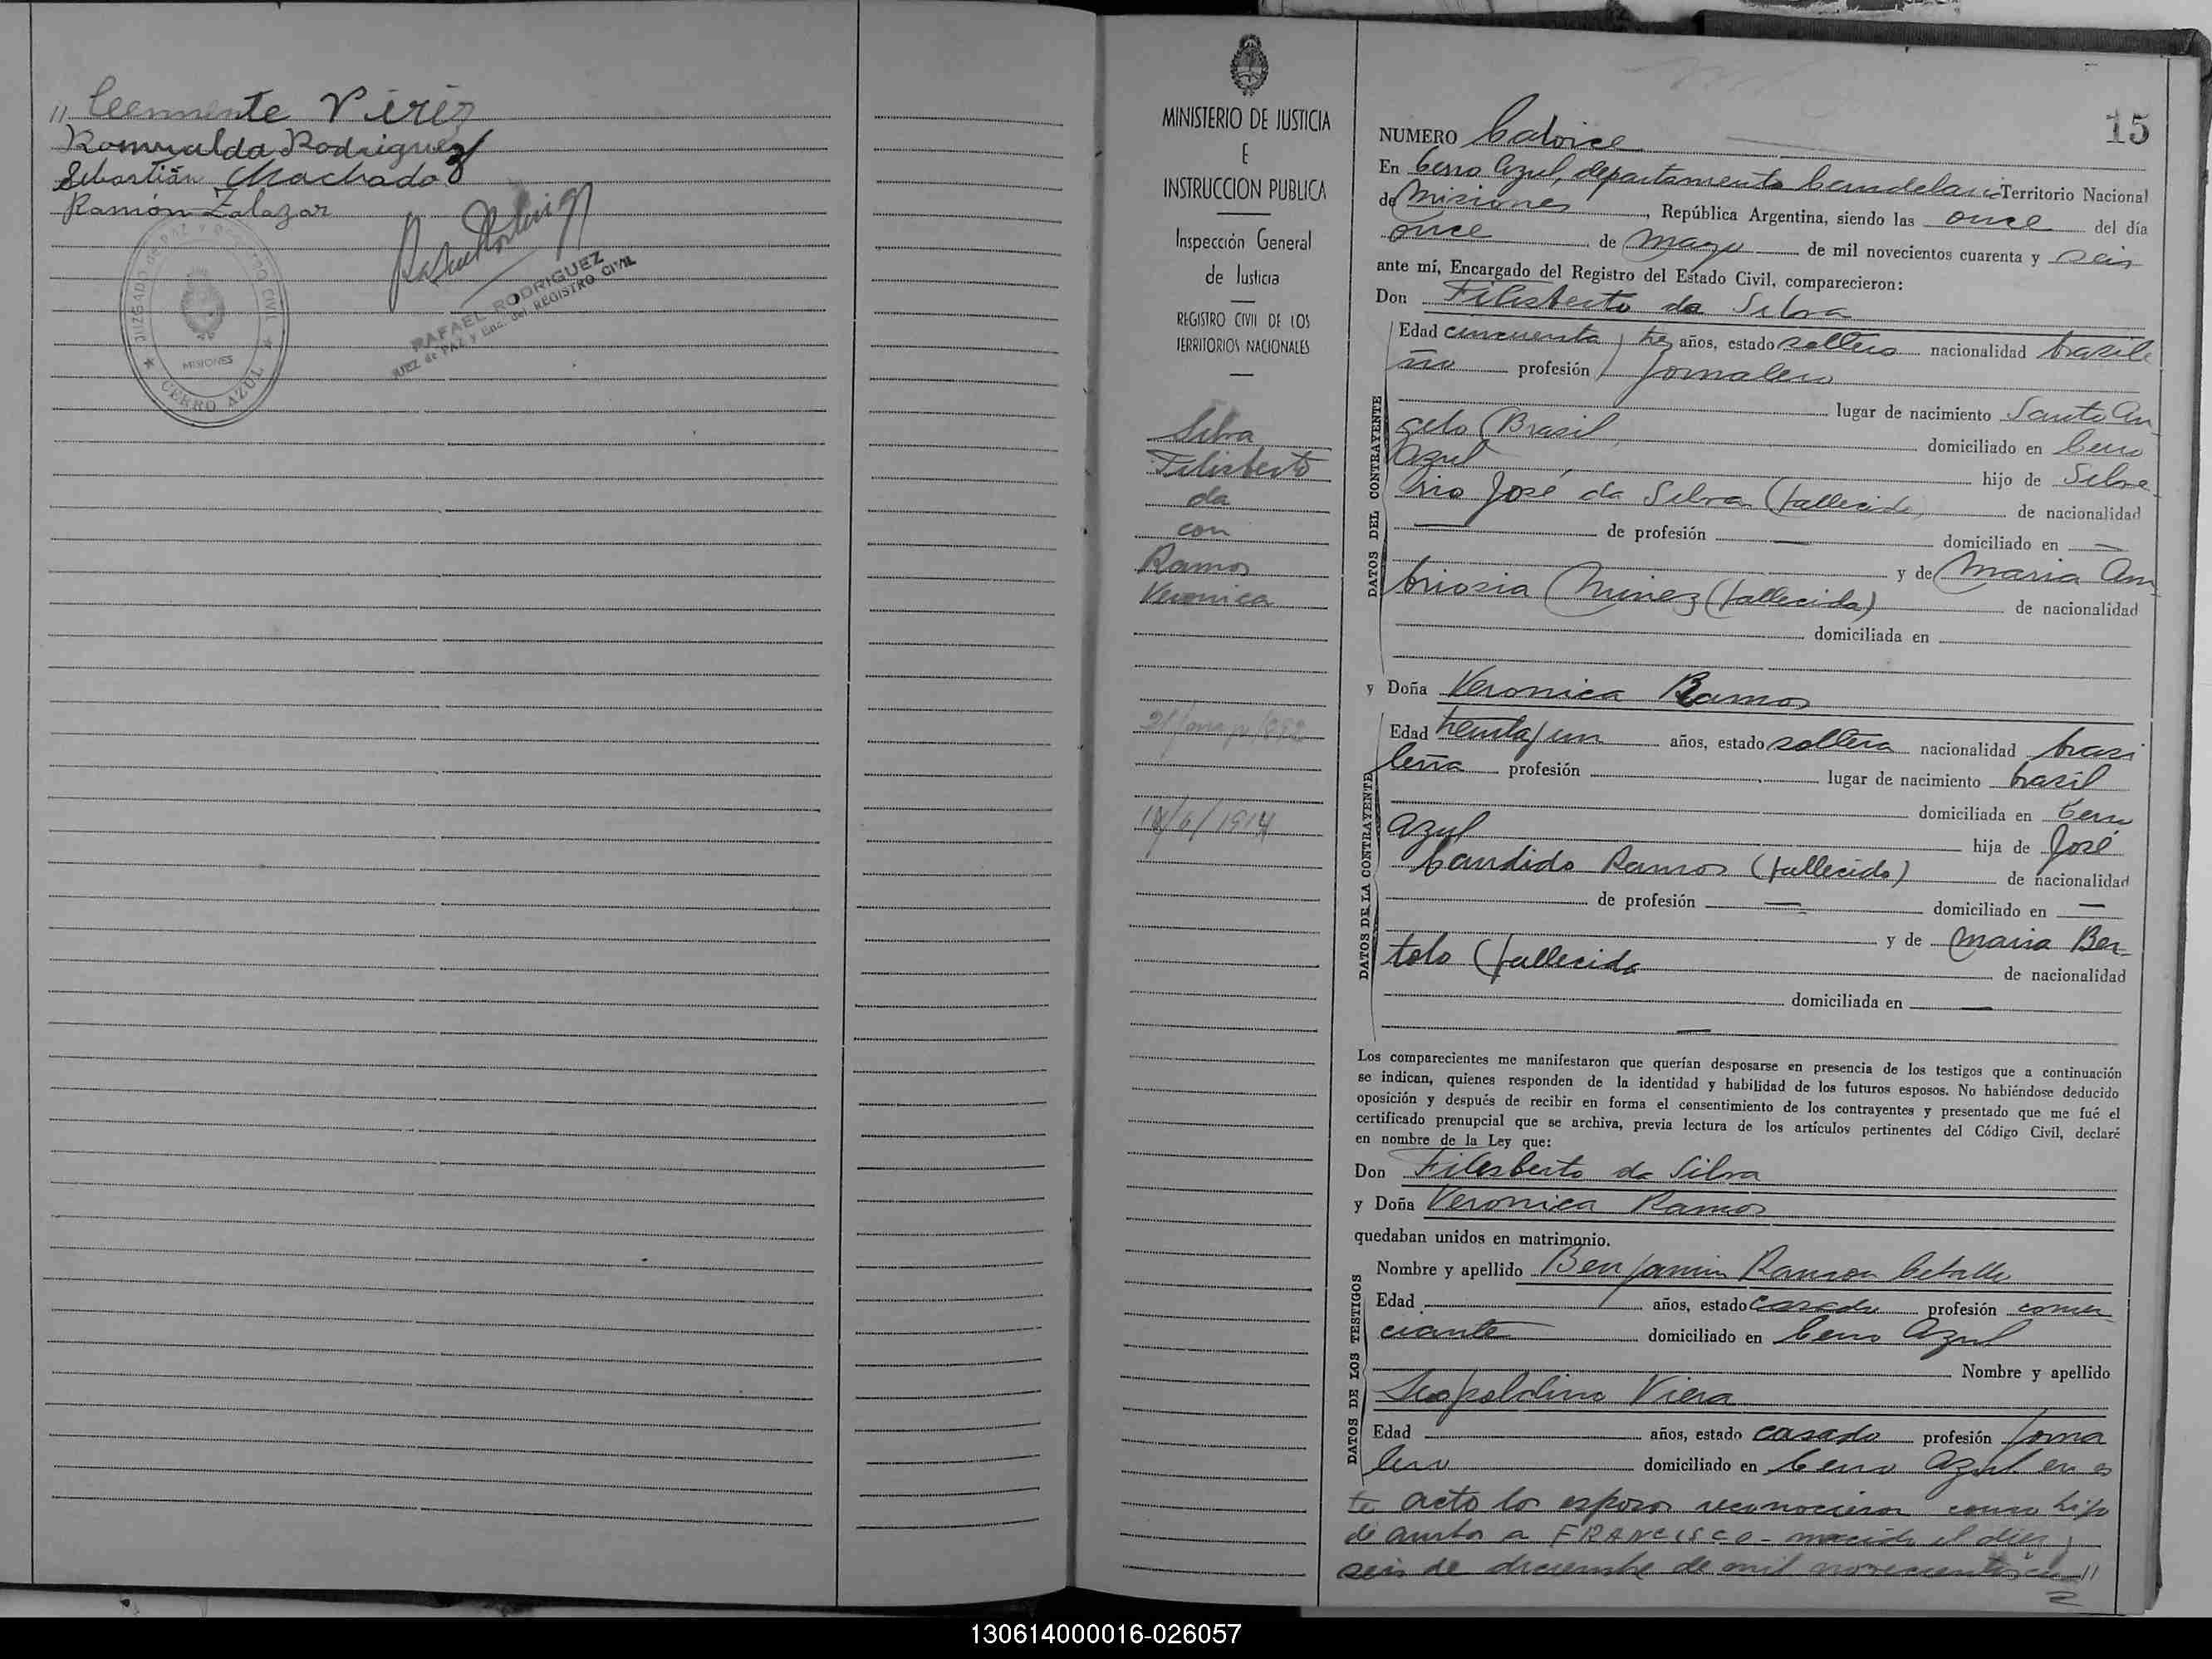 " Clemente Viriz
Romualda Rodriguez
Sebastián Machado
Ramón Zalazar
JUZGADO de PAZ Y REGISTRO CIVIL
MISIONES
★ CERRO AZUL ★
RAFAEL RODRIGUEZ
JUEZ de PAZ y Enc. del REGISTRO CIVIL
MINISTERIO DE JUSTICIA
E
INSTRUCCION PUBLICA
Inspección General
de Justicia
REGISTRO CIVIL DE LOS
TERRITORIOS NACIONALES
Silva
Filisberto
da
con
Ramos
Veronica
14/6/1914
15
NUMERO Catorce
En Cerro Azul, departamento Candelaria Territorio Nacional
de Misiones, República Argentina, siendo las once del día
once de mayo de mil novecientos cuarenta y seis
ante mí, Encargado del Registro del Estado Civil, comparecieron:
Don Filisberto da Silva
DATOS DEL CONTRAYENTE
Edad cincuenta y tres años, estado soltero nacionalidad brasile
ño profesión Jornalero
lugar de nacimiento Santo An
gelo (Brasil domiciliado en Cerro
Azul hijo de Silve
rio José da Silva (fallecido) de nacionalidad
— de profesión — domiciliado en —
y de Maria Am
briosia Nunez (fallecida) de nacionalidad
domiciliada en
y Doña Veronica Ramos
DATOS DE LA CONTRAYENTE
Edad treinta y un años, estado soltera nacionalidad brasi
leña profesión lugar de nacimiento brasil
domiciliada en Cerro
Azul hija de José
Candido Ramos (fallecido) de nacionalidad
de profesión — domiciliado en —
y de Maria Ber-
tolo (fallecida de nacionalidad
domiciliada en —
—
Los comparecientes me manifestaron que querían desposarse en presencia de los testigos que a continuación
se indican, quienes responden de la identidad y habilidad de los futuros esposos. No habiéndose deducido
oposición y después de recibir en forma el consentimiento de los contrayentes y presentado que me fué el
certificado prenupcial que se archiva, previa lectura de los artículos pertinentes del Código Civil, declaré
en nombre de la Ley que:
Don Filisberto da Silva
y Doña Veronica Ramos
quedaban unidos en matrimonio.
DATOS DE LOS TESTIGOS
Nombre y apellido Benjamin Ramon
Edad años, estado casado profesión comer
ciante domiciliado en Cerro Azul
Nombre y apellido
Leopoldino Viera
Edad años, estado casado profesión Jorna
lero domiciliado en Cerro Azul en es
te acto los esposos reconocieron como hijo
de ambos a FRANCISCO- nacido el diez y
seis de diciembre de mil novecientos
130614000016-026057